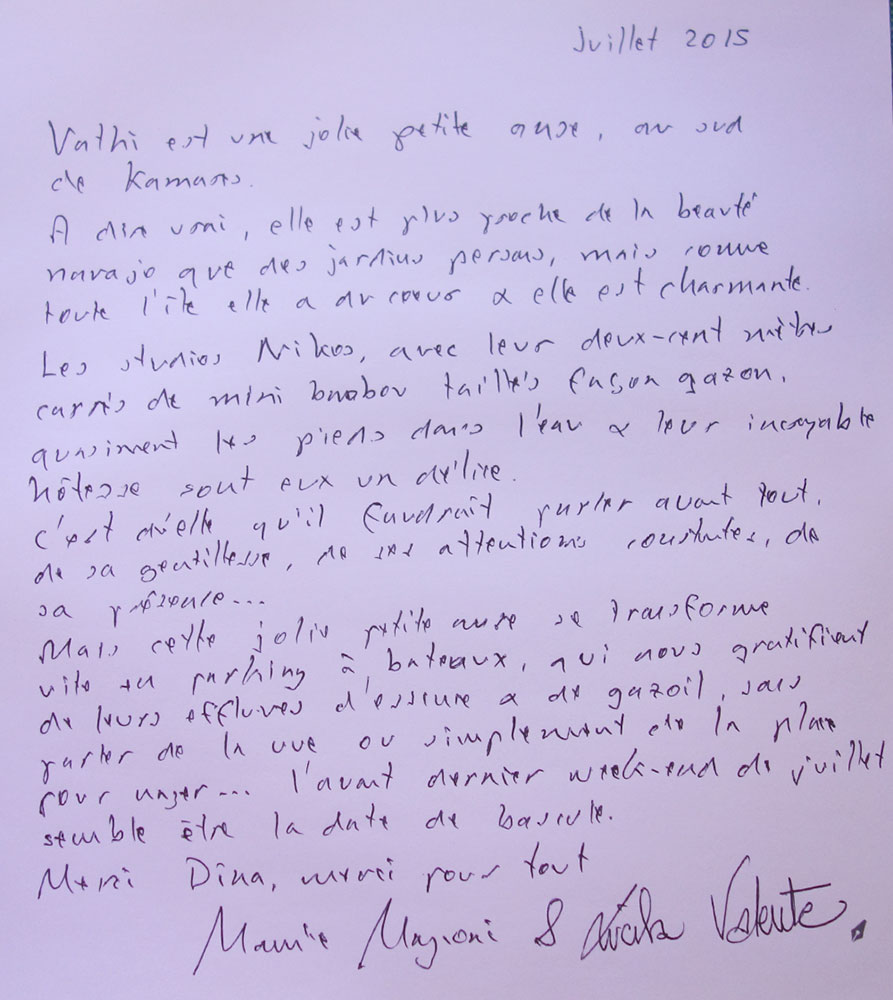 Juillet 2015
Vathi est une jolie petite anse, au sud
de Kamares.
A dire vrai, elle est plus proche de la beauté
navajo que des jardins persans, mais comme
toute l'île elle a du coeur & elle est charmante.
Les studios Nikos, avec leur deux-cent mètres
carrés de mini baobab taillés façon gazon,
quasiment les pieds dans l'eau & leur incroyable
hôtesse sont eux un délire.
C'est d'elle qu'il faudrait parler avant tout,
de sa gentillesse, de ses attentions constantes, de
sa présence...
Mais cette jolie petite anse se transforme
vite en parking à bateaux, qui nous gratifient
de leurs effluves d'essence & de gazoil, sans
parler de la vue ou simplement de la place
pour nager... l'avant dernier week-end de juillet
semble être la date de bascule.
Merci Dina, merci pour tout
& Valente